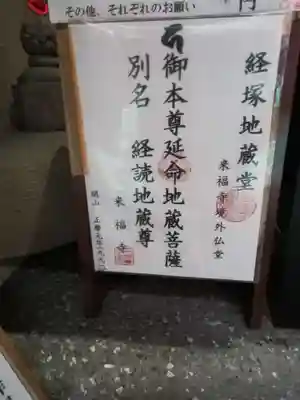 その他、それぞれのお願い
円
経塚地蔵堂
来福寺境外仏堂
御本尊延命地蔵菩薩
別名 経読地蔵尊
来福寺
開山 正暦元年